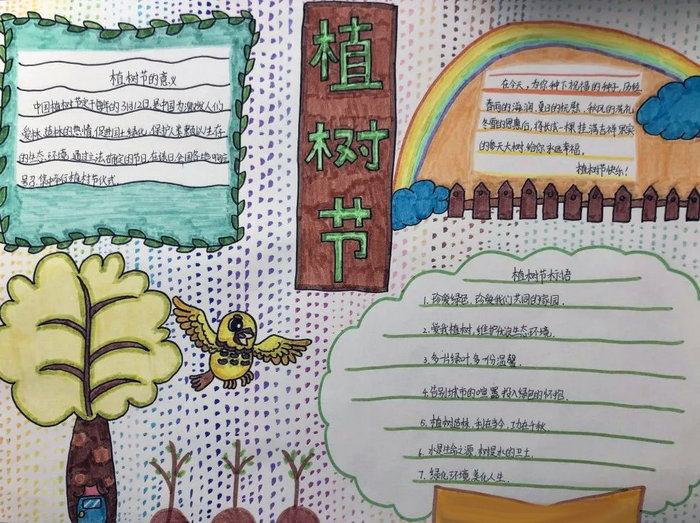 植树节
植树节的意义
中国植树节定于每年的3月12日,是中国为激发人们
爱林、造林的热情,促进国土绿化,保护人类赖以生存
的生态环境,通过立法确定的节日,在该日全国各地
集中举行植树节仪式.
在今天,为你种下祝福的种子,历经
春雨的滋润、夏日的
冬雪的恩惠后,将长成一棵挂满吉祥果实
的参天大树,给你永远幸福,
植树节快乐!
植树节标语
1.珍爱绿色,珍爱我们共同的家园.
2.爱我植树,维护优良生态环境.
3.多一片绿叶,多一份温馨.
4.告别城市的喧嚣,投入绿色的怀抱.
5.植树造林,利在当今,功在千秋.
6.水是生命之源,树是水的卫士.
7.绿化环境,美化人生.